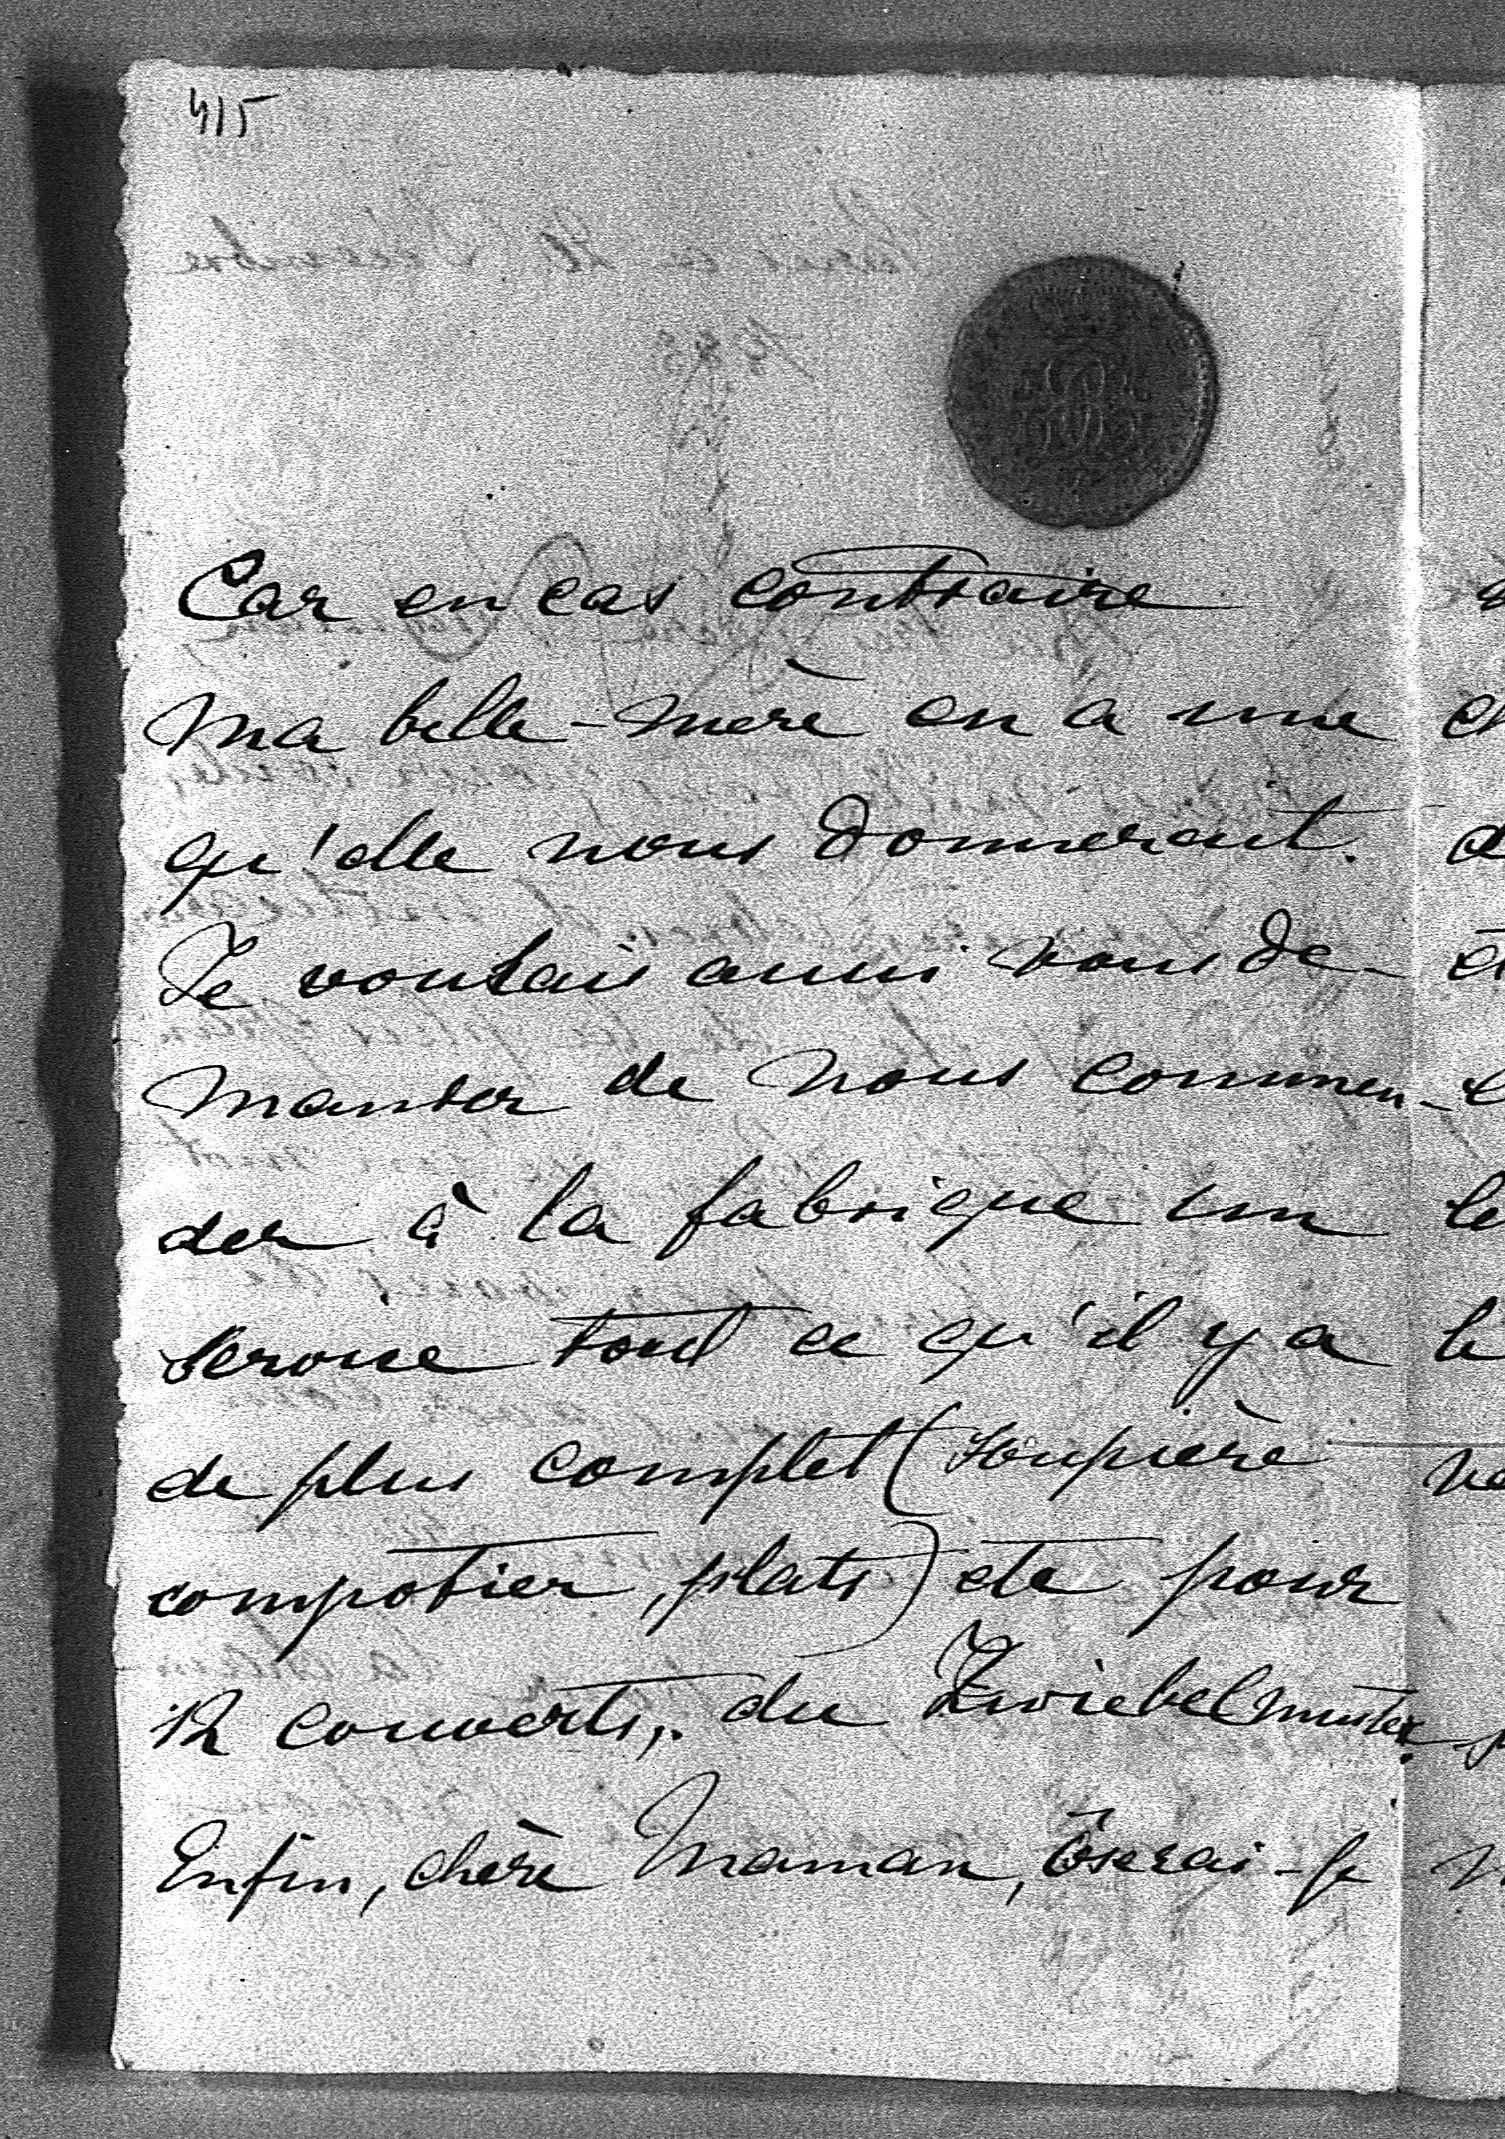 415
Car en cas contraire
ma belle-mère en a une
qu'elle nous donnerait.
Je voulais aussi vous de-
mander de nous commen-
der à la fabrique un
service tout ce qu'il y a
de plus complet (soupière
compotier, plats) etc pour
12 couverts, du Zwiebelmuster.
Enfin, chère Maman, oserai-je